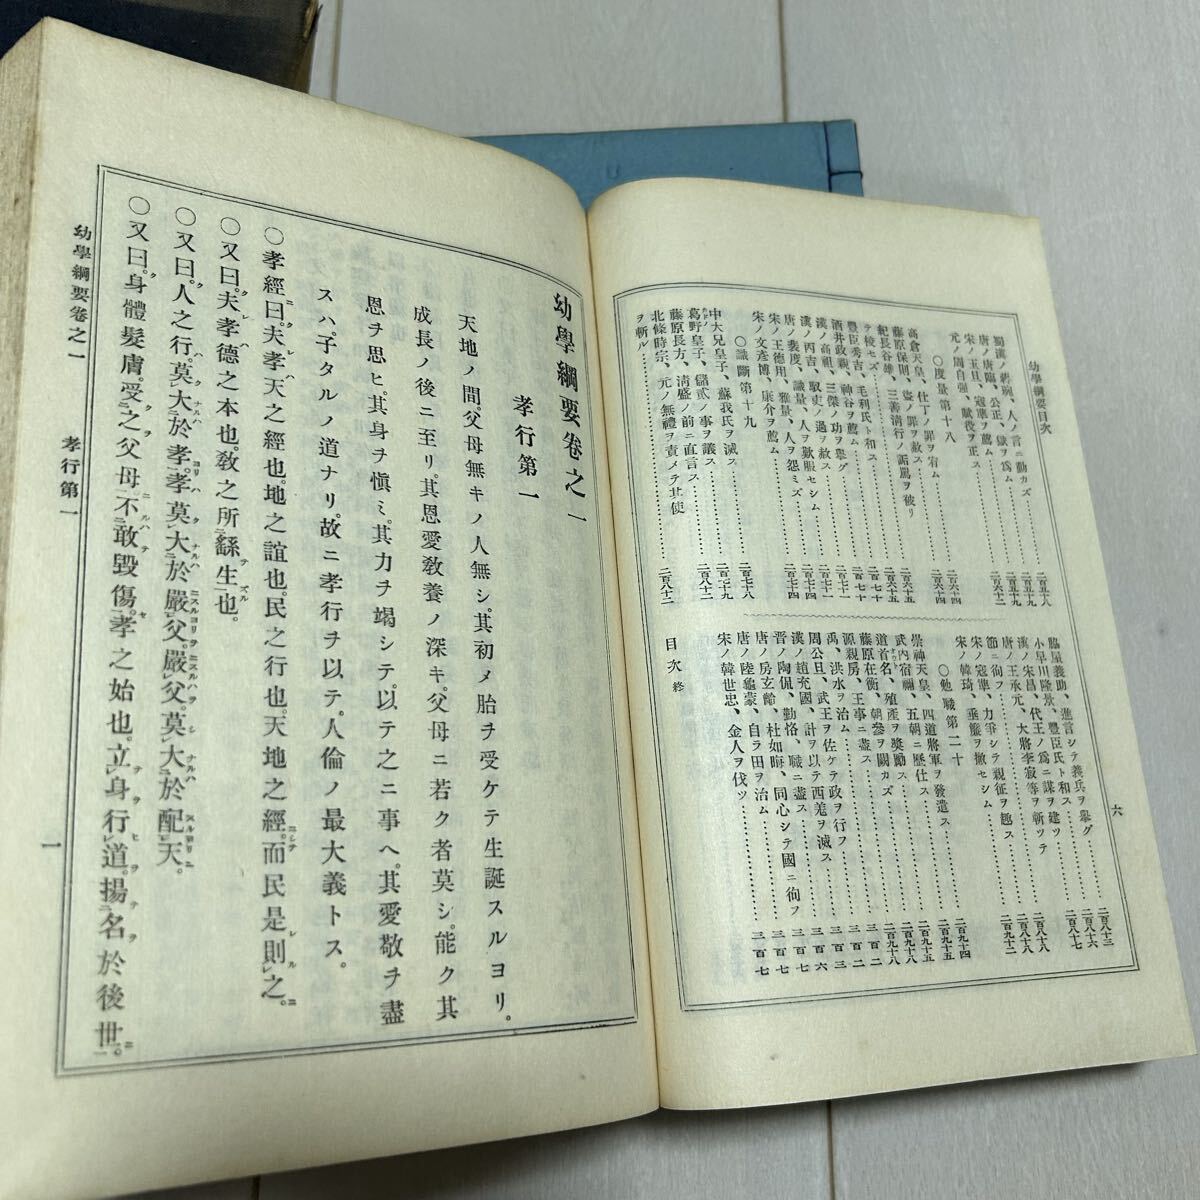 幼學綱要目次
六
蜀漢ノ蔣琬、人ノ言ニ動カズ………二百五十八
唐ノ唐臨、公正、獄ヲ爲ム………二百五十九
宋ノ王旦、寇準ヲ薦ム………二百六十二
元ノ周自强、賦役ヲ正ス
〇度量第十八………二百六十四
高倉天皇、仕丁ノ罪ヲ宥ム………二百六十四
藤原保則、盜ノ罪ヲ赦ス………二百六十五
紀長谷雄、三善淸行ノ詬罵ヲ被リテ校セズ………二百六十五
豐臣秀吉、毛利氏ト和ス………二百七十
酒井政親、神谷ヲ薦ム………二百七十
漢ノ高祖、三傑ノ功ヲ擧グ………二百七十一
漢ノ丙吉、馭吏ノ過ヲ赦ス………二百七十二
唐ノ裴度、識量、人ヲ歎服セシム………二百七十四
宋ノ王德用、雅量、人ヲ怨ミズ………二百七十四
宋ノ文彥博、唐介ヲ薦ム
〇識斷第十九………二百七十八
中大兄皇子、蘇我氏ヲ滅ス………二百七十八
葛野皇子、儲貳ノ事ヲ議ス………二百七十九
藤原長方、淸盛ノ前ニ直言ス………二百八十二
北條時宗、元ノ無禮ヲ責メテ其使
ヲ斬ル………二百八十二
脇屋義助、進言シテ義兵ヲ擧グ………二百八十三
小早川隆景、豐臣氏ト和ス………二百八十六
漢ノ宋昌、代王ノ爲ニ謀ヲ建ツ………二百八十七
唐ノ王承元、大將李寂等ヲ斬ッテ
節ニ徇フ………二百八十八
宋ノ寇準、力爭シテ親征ヲ趣ス………二百八十八
宋ノ韓琦、垂簾ヲ撤セシム………二百九十二
〇勉職第二十………二百九十四
崇神天皇、四道將軍ヲ發遣ス………二百九十五
武內宿禰、五朝ニ歷仕ス………二百九十五
道首名、殖產ヲ奬勵ス………二百九十八
藤原在衡、朝參ヲ闕カズ………二百九十八
源親房、王事ニ盡ス………三百二
禹、洪水ヲ治ム………三百二
周公旦、武王ヲ佐ケテ政ヲ行フ………三百三
漢ノ趙充國、計ヲ以テ西羌ヲ滅ス………三百六
晉ノ陶侃、勤恪、職ニ盡ス………三百七
唐ノ房玄齡、杜如晦、同心シテ國ニ徇フ
唐ノ陸龜蒙、自ラ田ヲ治ム………三百七
宋ノ韓世忠、金人ヲ伐ツ………三百七
目次終
幼學綱要卷之一
孝行第一
天地ノ間、父母無キノ人無シ。其初メ胎ヲ受ケテ生誕スルヨリ。
成長ノ後ニ至リ。其恩愛敎養ノ深キ。父母ニ若ク者莫シ。能ク其
恩ヲ思ヒ。其身ヲ愼ミ。其力ヲ竭シテ。以テ之ニ事ヘ。其愛敬ヲ盡
スハ。子タルノ道ナリ。故ニ孝行ヲ以テ。人倫ノ最大義トス。
〇孝經ニ曰。夫孝天之經也。地之誼也。民之行也。天地之經ニシテ。而民是則之。
〇又曰。夫孝德之本也。敎之所繇生也。
〇又曰。人之行。莫大於孝。孝莫大於嚴父。嚴父莫大於配天。
〇又曰。身體髮膚。受之父母。不敢毀傷。孝之始也。立身行道。揚名於後世。
幼學綱要卷之一　孝行第一
一